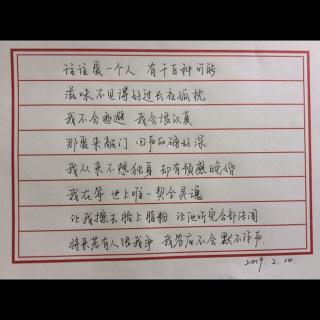 往往爱一个人 有千百种可能
滋味不见得好过长夜孤枕
我不会逃避 我会很认真
那爱来敲门 回声的确好深
我从来不想独身 却有预感晚婚
我在等 世上唯一契合灵魂
让我擦去脸上脂粉 让他听完全部传闻
将来若有人跟我争 我答应不会默不作声
2019. 2. 10.